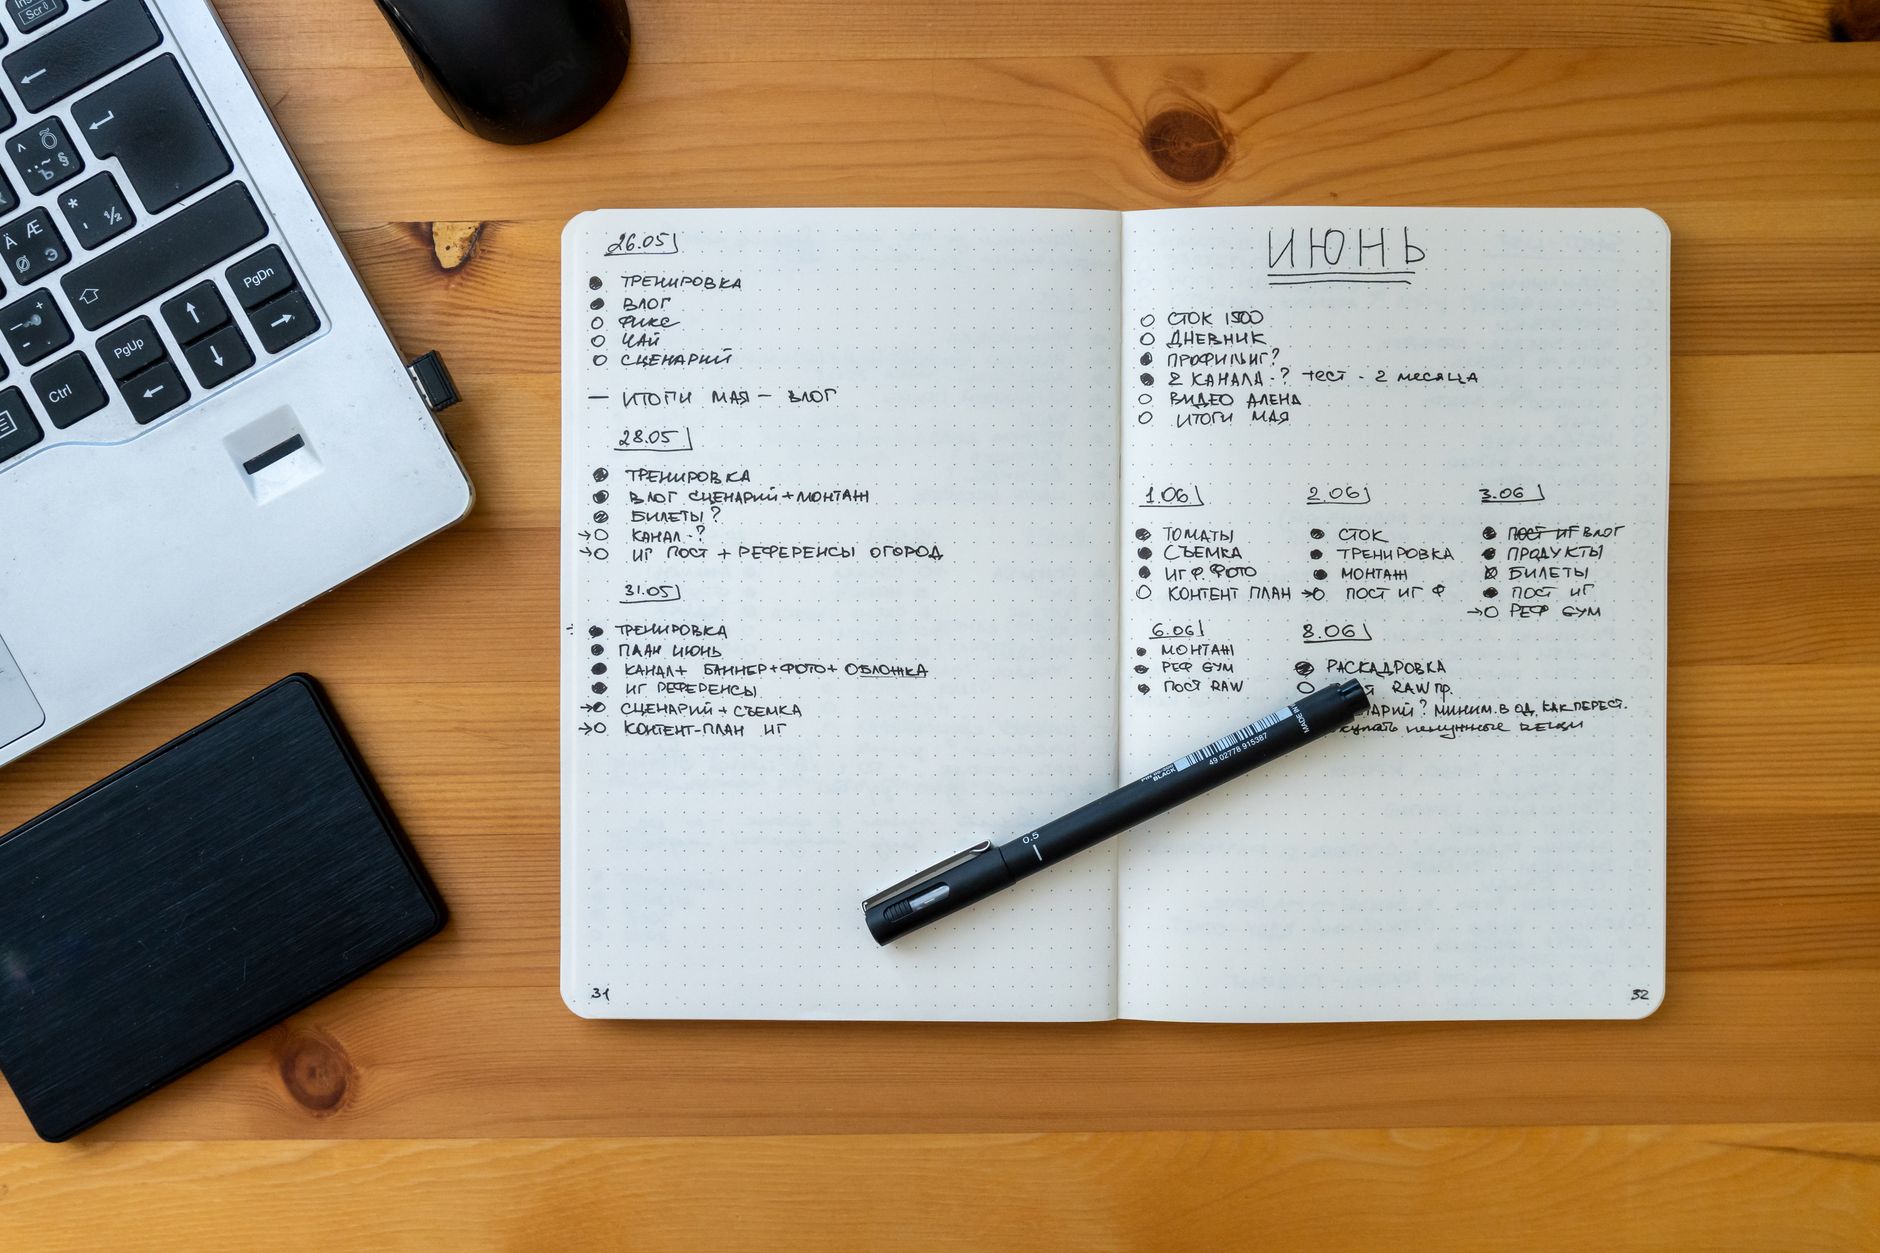 Ins
Scr
SVEN
PgDn
PgUp
Ctrl
26.05
ТРЕНИРОВКА
ВЛОГ
ФИКС
ЧАЙ
СЦЕНАРИЙ
— ИТОГИ МАЯ — ВЛОГ
28.05
ТРЕНИРОВКА
ВЛОГ СЦЕНАРИЙ+МОНТАЖ
БИЛЕТЫ?
КАНАЛ-?
ИГ ПОСТ + РЕФЕРЕНСЫ ОГОРОД
31.05
ТРЕНИРОВКА
ПЛАН ИЮНЬ
КАНАЛ+ БАННЕР+ФОТО+ ОБЛОЖКА
ИГ РЕФЕРЕНСЫ
СЦЕНАРИЙ+СЪЕМКА
КОНТЕНТ-ПЛАН ИГ
31
ИЮНЬ
СТОК 1500
ДНЕВНИК
ПРОФИЛЬ ИГ?
2 КАНАЛА-? ТЕСТ - 2 МЕСЯЦА
ВИДЕО АЛЕНА
ИТОГИ МАЯ
1.06
ТОМАТЫ
СЪЕМКА
ИГ Ф. ФОТО
КОНТЕНТ ПЛАН
2.06
СТОК
ТРЕНИРОВКА
МОНТАЖ
ПОСТ ИГ Ф
3.06
ПОСТ ИГ ВЛОГ
ПРОДУКТЫ
БИЛЕТЫ
ПОСТ ИГ
РЕФ GYM
6.06
МОНТАЖ
РЕФ GYM
ПОСТ RAW
8.06
РАСКАДРОВКА
RAW ПР.
МИНИМ. В ОД. КАК ПЕРЕСТ.
ненужные вещи
32
0.5
BLACK
49 02778 915387
MADE IN